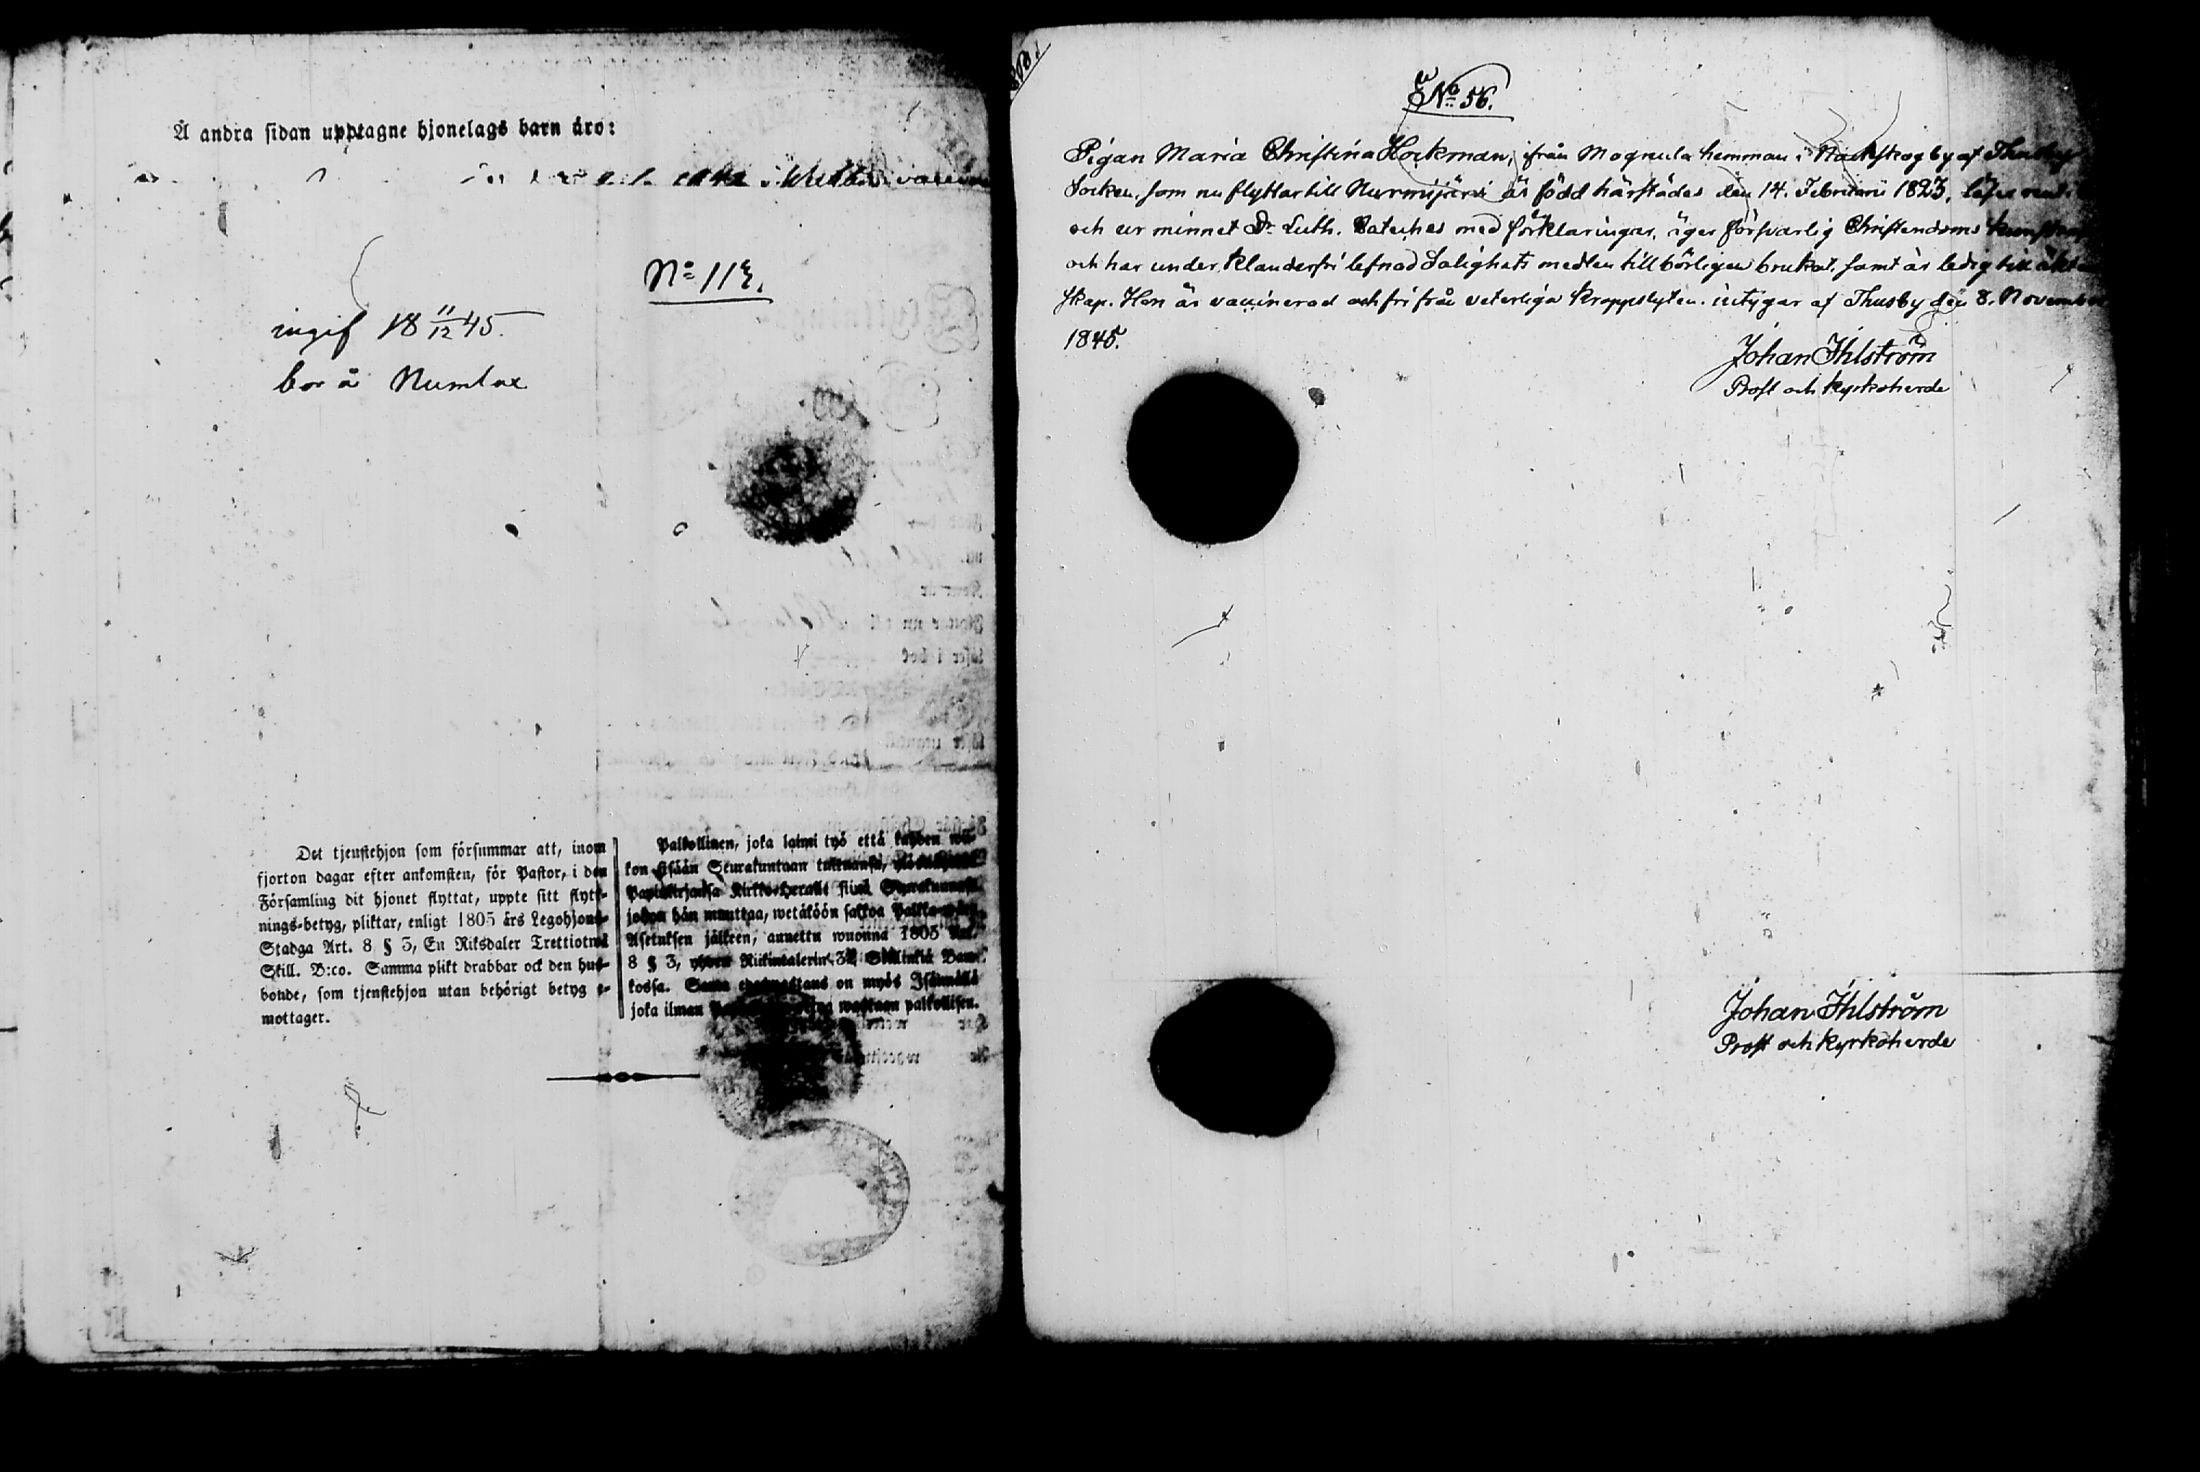 Å andra sidan upptagne hjonelags barn äro:
No 112.
ingif 18 11/12 45.
bor å Numlax
Det tjenstehjon som försummar att, inom
fjorton dagar efter ankomsten, för Pastor, i den
Församling dit hjonet flyttat, uppte sitt flytt-
nings-betyg, pliktar, enligt 1805 års Legohjons-
Stadga Art. 8 § 3, En Riksdaler Trettiotwå
Skill. B:co. Samma plikt drabbar ock den hus-
bonde, som tjenstehjon utan behörigt betyg e-
mottager.
Palkollinen, joka laimi lyö että kahden wii-
kon sisään Seurakuntaan
Kirkko-Herralle siinä
johon hän muuttaa, wetäköön sakkoa
Asetuksen jälkeen, annettu wuonna 1805
8 § 3, Riikintalerin 32 Skillinkiä Ban-
kossa. Sama on myös Isännällä
joka ilman palkollisen.
No 56.
Pigan Maria Christina Hockman, ifrån Magnula hemman i af Thusby
Socken, som nu flyttar till Nurmijärvi är född härstädes den 14. Februarii 1823, läser
och ur minnet Dr Luth. Cateches med förklaringar, äger försvarlig Christendoms kunskap
och har under klanderfri lefnad Salighets medlen tillbörligen brukat, samt är ledig till äkten
skap. Hon är vaccinerad och fri från veterliga kroppslyten. intygar af Thusby den 8. November
1845.
Johan Ihlström
Prost och kyrkoherde
Johan Ihlström
Prost och kyrkoherde